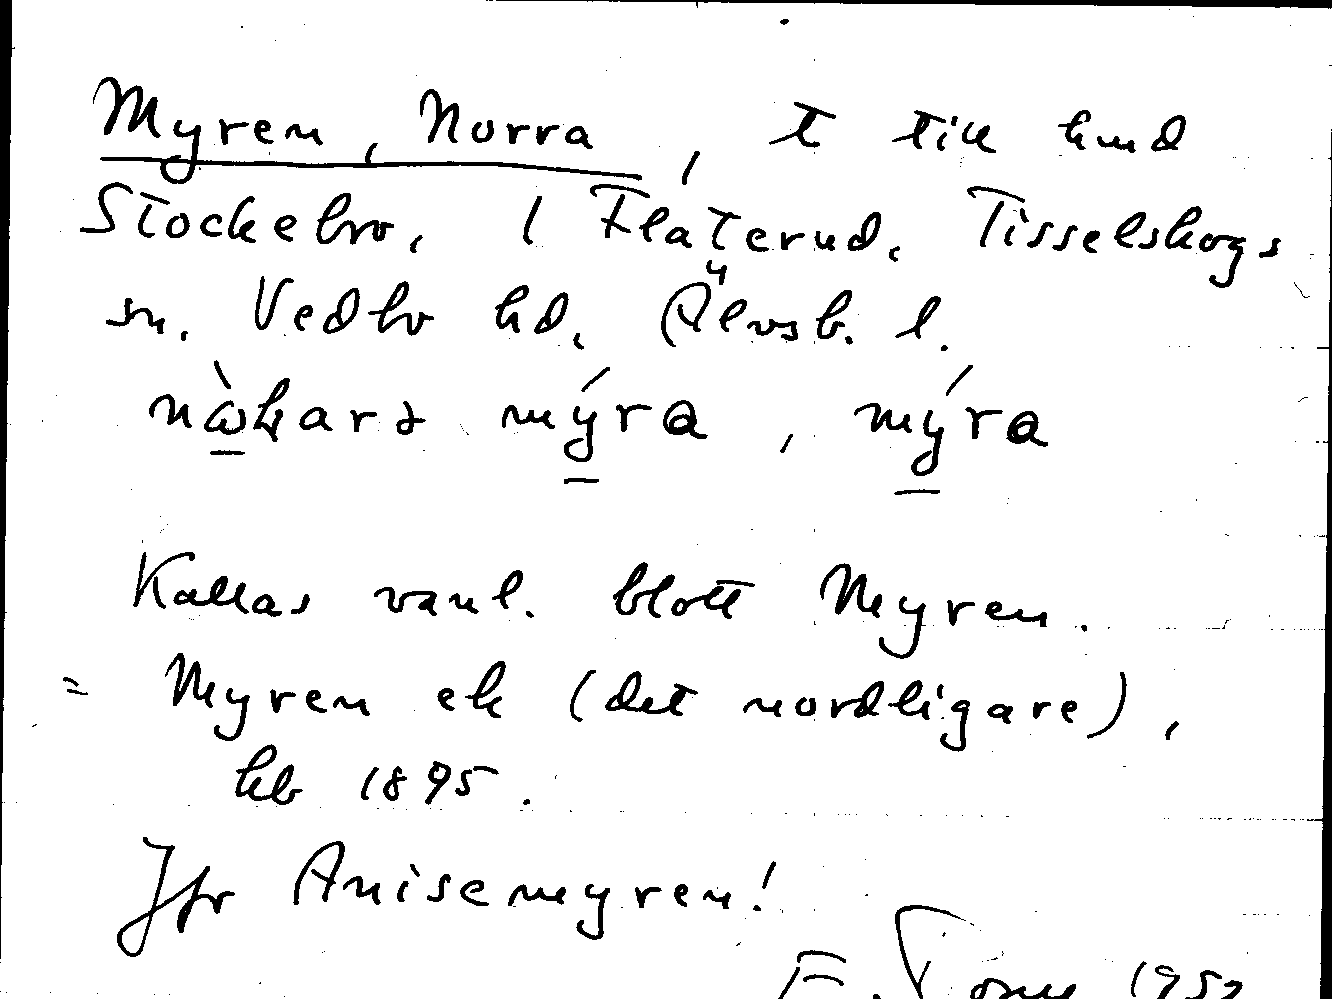 Myren, Norra, t till hmd
Stockebo, 1 Flaterud, Tisselskogs
sn. Vedbo hd, Älvsb. l.
mýra, mýra
Kallas vanl. blott Myren.
= Myren ek (det nordligare),
hb 1895.
Jfr Anisemyren!
F.